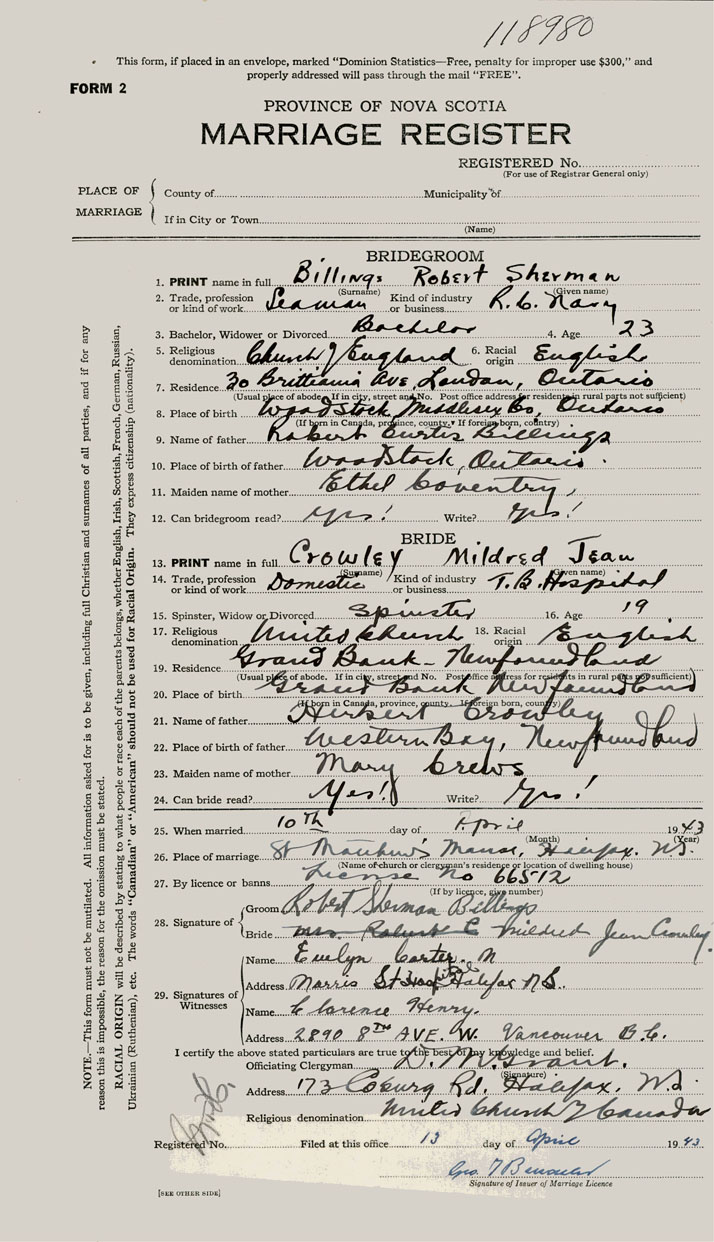 118980
This form, if placed in an envelope, marked "Dominion Statistics—Free, penalty for improper use $300," and
properly addressed will pass through the mail "FREE".
FORM 2
PROVINCE OF NOVA SCOTIA
MARRIAGE REGISTER
REGISTERED No.
(For use of Registrar General only)
PLACE OF MARRIAGE
County of Municipality of
If in City or Town
(Name)
BRIDEGROOM
1. PRINT name in full Billings Robert Sherman
(Surname) (Given name)
2. Trade, profession or kind of work Seaman Kind of industry or business R.C. Navy
3. Bachelor, Widower or Divorced Bachelor 4. Age 23
5. Religious denomination Church of England 6. Racial origin English
7. Residence 30 Brittiania Ave, London, Ontario
(Usual place of abode. If in city, street and No. Post office address for residents in rural parts not sufficient)
8. Place of birth Woodstock Middlesex Co, Ontario
(If born in Canada, province, county. If foreign born, country)
9. Name of father Robert Curtis Billings
10. Place of birth of father Woodstock, Ontario.
11. Maiden name of mother Ethel Coventry,
12. Can bridegroom read? Yes! Write? Yes!
BRIDE
13. PRINT name in full Crowley Mildred Jean
(Surname) (Given name)
14. Trade, profession or kind of work Domestic Kind of industry or business T.B. Hospital
15. Spinster, Widow or Divorced Spinster 16. Age 19
17. Religious denomination United Church 18. Racial origin English
19. Residence Grand Bank - Newfoundland
(Usual place of abode. If in city, street and No. Post office address for residents in rural parts not sufficient)
20. Place of birth Grand Bank Newfoundland
(If born in Canada, province, county. If foreign born, country)
21. Name of father Herbert Crowley
22. Place of birth of father Western Bay, Newfoundland
23. Maiden name of mother Mary Crews
24. Can bride read? Yes! Write? Yes!
25. When married 10th day of April 1943
(Month) (Year)
26. Place of marriage St Matthew's Manse, Halifax. N.S.
(Name of church or clergyman's residence or location of dwelling house)
27. By licence or banns License No 66512
(If by licence, give number)
28. Signature of
Groom Robert Sherman Billings
Bride Mrs. Mildred Jean Crowley
29. Signatures of Witnesses
Name Evelyn Carter. N
Address Morris St Hospital Halifax N.S.
Name Clarence Henry.
Address 2890 8TH AVE. W. Vancouver B.C.
I certify the above stated particulars are true to the best of my knowledge and belief.
Officiating Clergyman D. M. Grant.
(Signature)
Address 173 Coburg Rd, Halifax. N.S
Religious denomination United Church of Canada
Registered No. Filed at this office 13 day of April 1943
Geo. T
Signature of Issuer of Marriage Licence
[SEE OTHER SIDE]
NOTE.—This form must not be mutilated. All information asked for is to be given, including full Christian and surnames of all parties, and if for any
reason this is impossible, the reason for the omission must be stated.
RACIAL ORIGIN will be described by stating to what people or race each of the parents belongs, whether English, Irish, Scottish, French, German, Russian,
Ukrainian (Ruthenian), etc. The words "Canadian" or "American" should not be used for Racial Origin. They express citizenship (nationality).